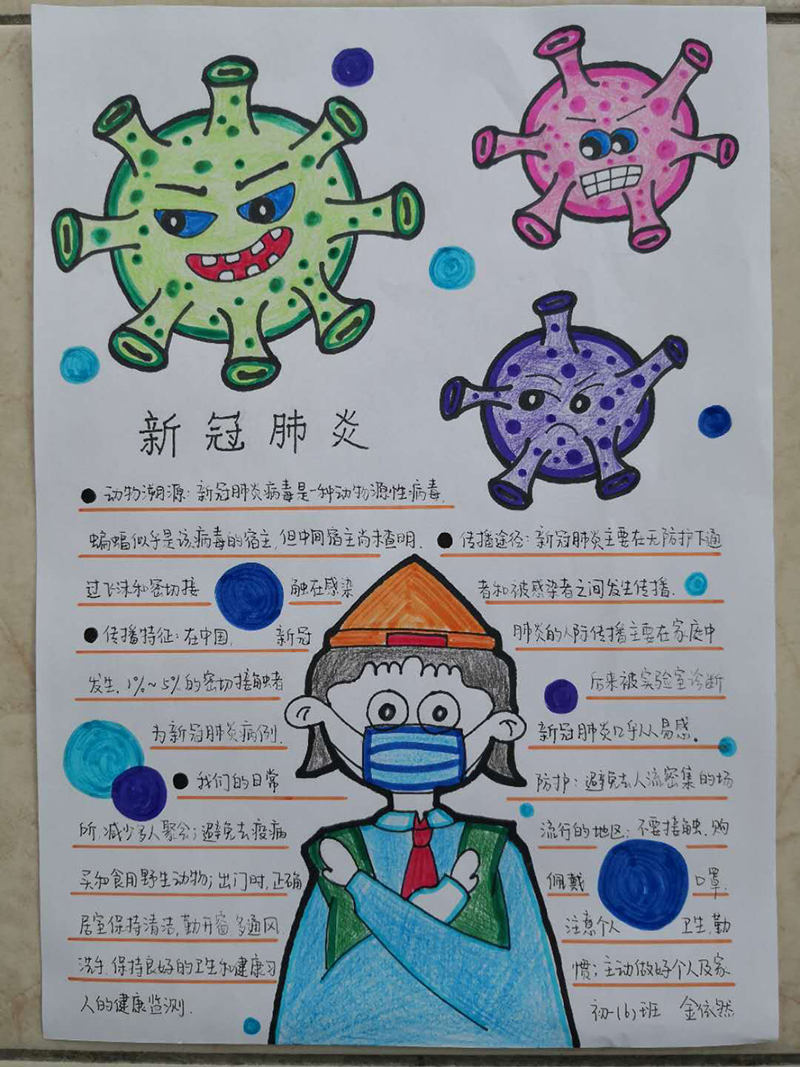 新冠肺炎
● 动物溯源：新冠肺炎病毒是一种动物源性病毒.
蝙蝠似乎是该病毒的宿主，但中间宿主尚未查明. ● 传播途径：新冠肺炎主要在无防护下通
过飞沫和密切接 触在感染 者和被感染者之间发生传播.
● 传播特征：在中国， 新冠 肺炎的人际传播主要在家庭中
发生，1%~5%的密切接触者 后来被实验室诊断
为新冠肺炎病例. 新冠肺炎几乎人人易感。
● 我们的日常 防护：避免去人流密集的场
所，减少多人聚会；避免去疫病 流行的地区；不要接触、购
买和食用野生动物；出门时，正确 佩戴 口罩.
居室保持清洁，勤开窗，多通风. 注意个人 卫生，勤
洗手，保持良好的卫生和健康习 惯；主动做好个人及家
人的健康监测. 初一(6)班 金依然